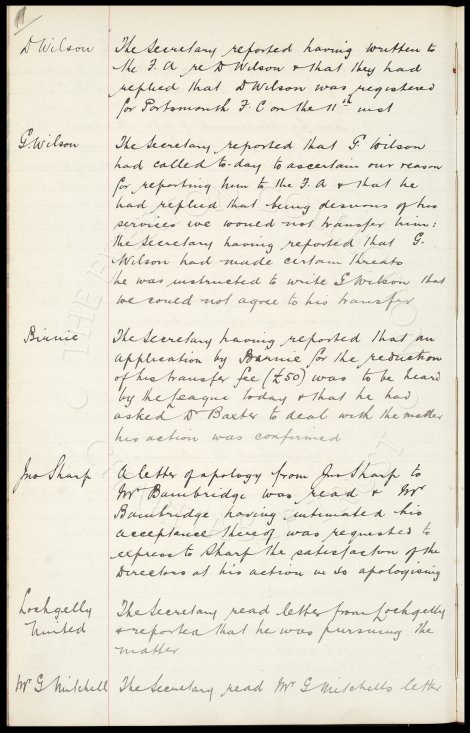 D Wilson The Secretary reported having written to
the F. A re D Wilson & that they had
replied that D Wilson was registered
for Portsmouth F. C on the 11th inst
G. Wilson The Secretary reported that G. Wilson
had called to-day to ascertain our reason
for reporting him to the F. A & that he
had replied that being desirous of his
services we would not transfer him:
the Secretary having reported that G.
Wilson had made certain threats
he was instructed to write G Wilson that
we could not agree to his transfer
Birnie The Secretary having reported that an
application by Birnie for the reduction
of his transfer fee (£50) was to be heard
by the League today & that he had
asked Dr Baxter to deal with the matter
his action was confirmed
Jno Sharp A letter of apology from Jno Sharp to
Mr Bainbridge was read & Mr
Bainbridge having intimated his
acceptance thereof was requested to
express to Sharp the satisfaction of the
Directors at his action in so apologising
Lochgelly The Secretary read letter from Lochgelly
United & reported that he was pursuing the
matter
Mr G Mitchell The Secretary read Mr G Mitchells letter